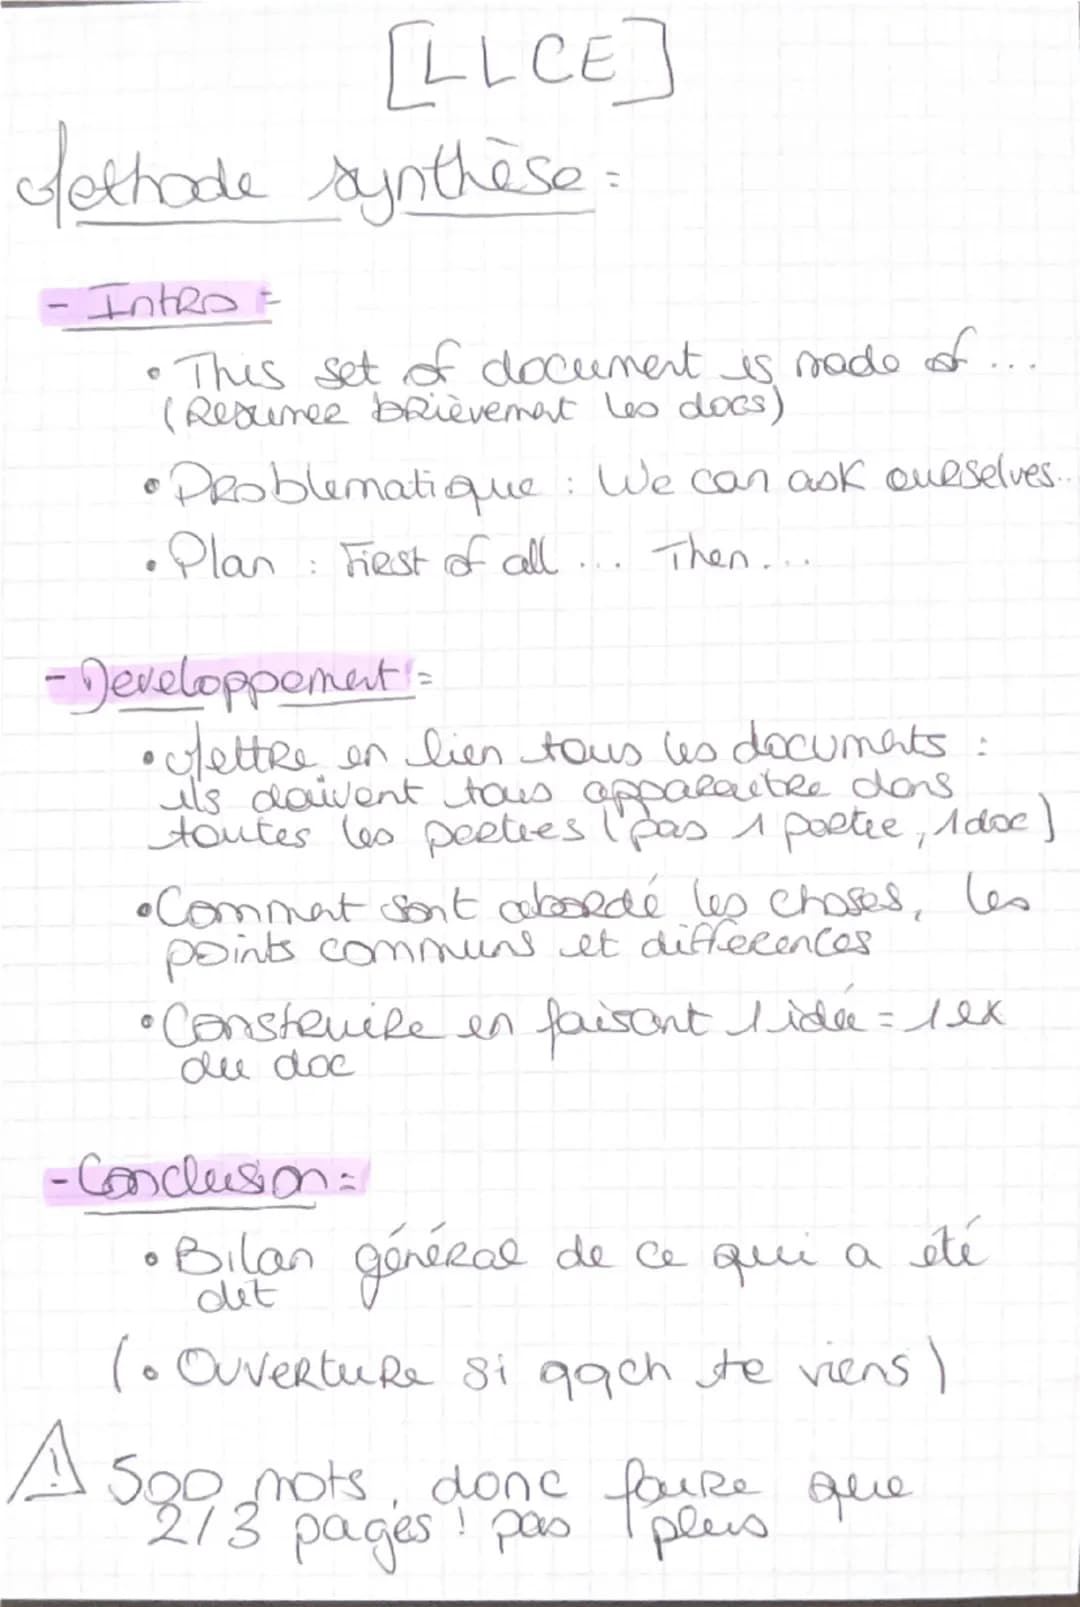 [LLCE]
Methode synthèse :
- Intro :
• This set of document is made of ...
(Resumer brièvement les docs)
• Problematique : We can ask ourselves...
• Plan : First of all ... Then ...
- Developpement :
• Mettre en lien tous les documents :
ils doivent tous apparaitre dans
toutes les parties (pas 1 partie, 1 doc)
• Comment sont abordé les choses, les
points communs et différences
• Construire en faisant 1 idée = 1 ex
du doc
- Conclusion :
• Bilan général de ce qui a été
dit
(• Ouverture si qqch te viens)
⚠ 500 mots, donc faire que
2/3 pages ! pas plus